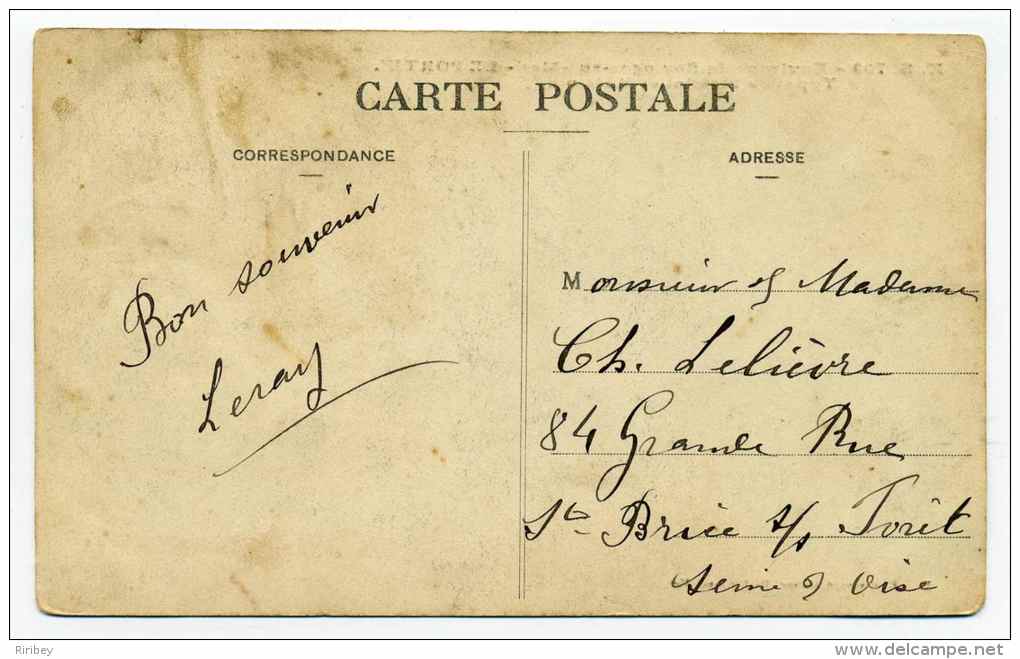 CARTE POSTALE
CORRESPONDANCE
ADRESSE
Bon souvenir
Leray
Monsieur et Madame
Ch. Lelièvre
84 Grande Rue
St Brice s/s Forêt
Seine et Oise
Riribey
www.delcampe.net